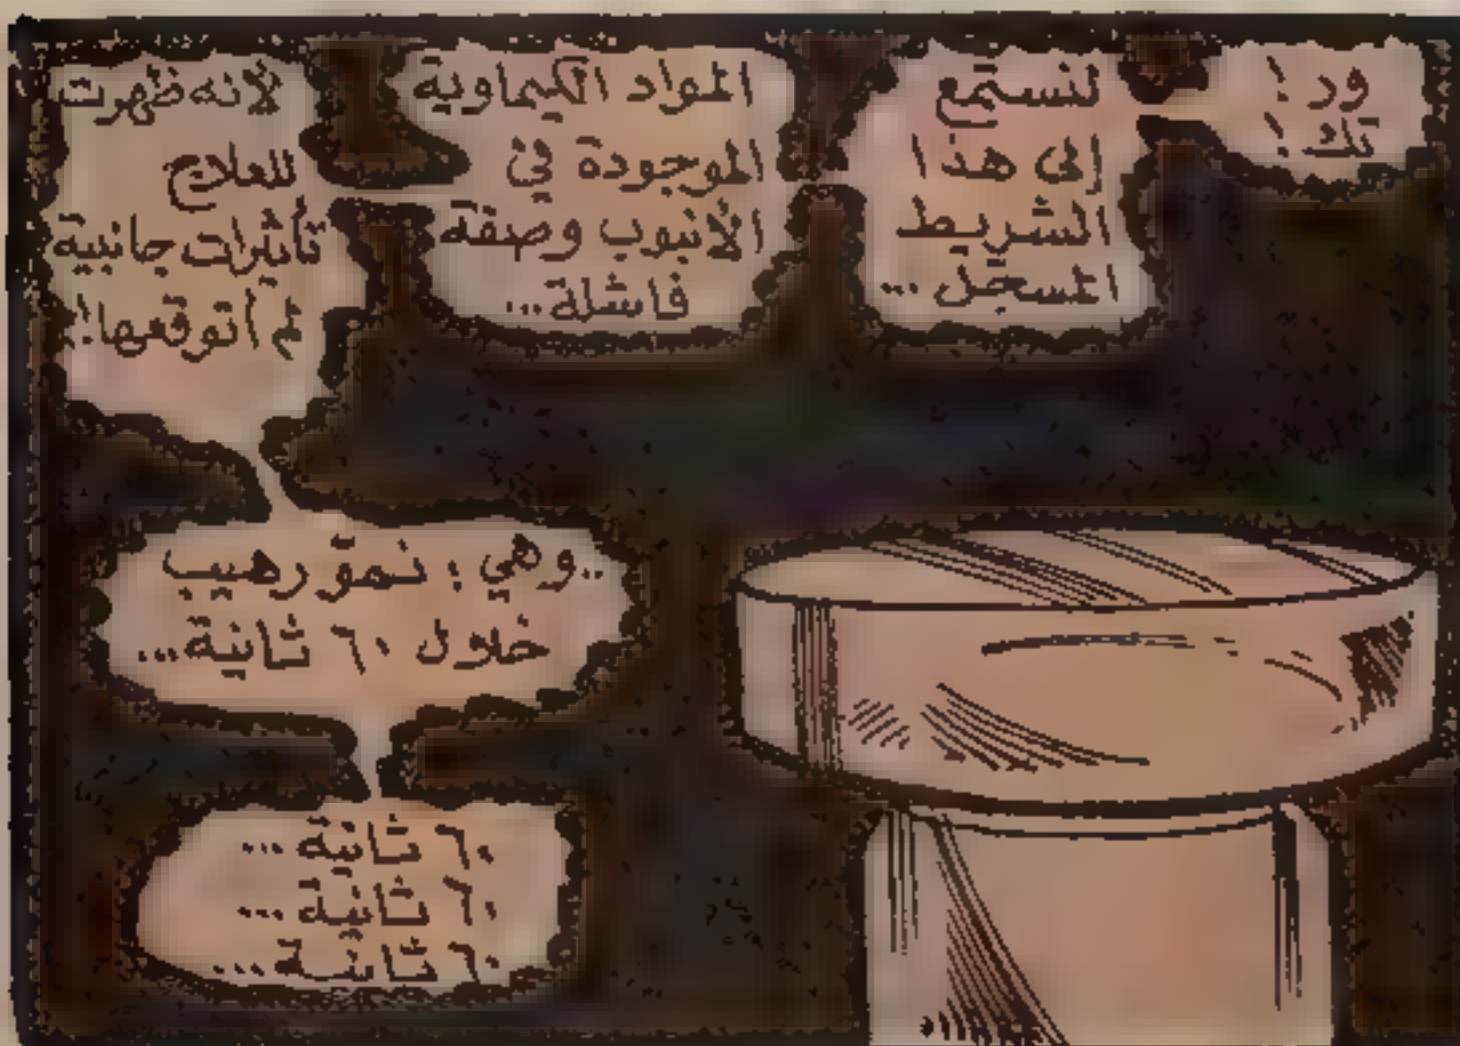 ور!
تك!
لنستمع
إلى هذا
الشريط
المسجّل...
المواد الكيماوية
الموجودة في
الأنبوب وصفة
فاشلة...
لأنه ظهرت
للعلاج
تأثيرات جانبية
لم أتوقعها!
..وهي: نموّ رهيب
خلال ٦٠ ثانية...
٦٠ ثانية...
٦٠ ثانية...
٦٠ ثانية...